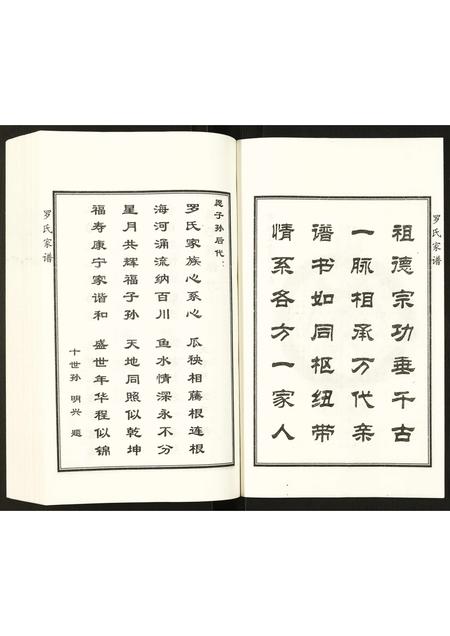 罗氏家谱
祖德宗功垂千古
一脉相承万代亲
谱书如同枢纽带
情系各方一家人
愚子孙后代：
罗氏家族心系心 瓜秧相藤根连根
海河涌流纳百川 鱼水情深永不分
星月共辉福子孙 天地同照似乾坤
福寿康宁家谐和 盛世年华程似锦
十世孙 明兴 题
罗氏家谱